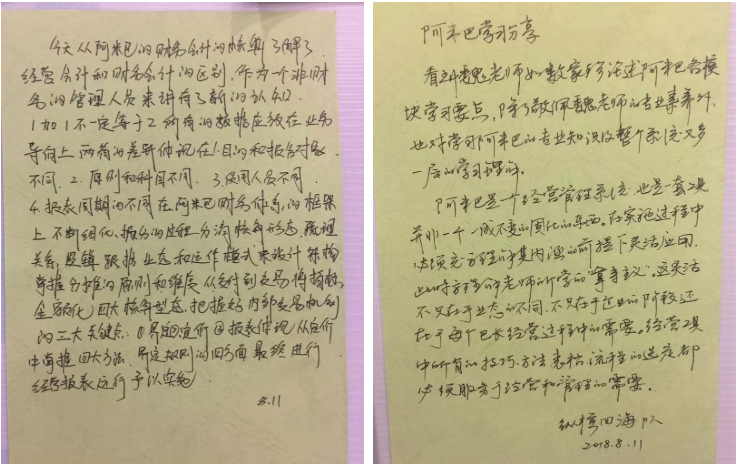 今天从阿米巴的财务会计的核算了解了
经营会计和财务会计的区别，作为一个非财
务的管理人员来讲有了新的认知。
1加1不一定等于2 所有的数据应放在业务
导向上 两者的差别体现在1.目的和报告对象
不同 2.原则和科目不同. 3.使用人员不同
4.报表周期的不同在阿米巴财务体系的框架
上不断细化、 核算形态
关系, 业态和运作模式来设计架构
掌握分摊的原则和维度 从交付到交易将
金额化 四大核算型态. 把握好内部交易机制
的三大关键点: ①界定定价②报表体现 从定价
中掌握四大方法. 界定规则的四方面最终进行
经营报表运行予以实施
8.11
阿米巴学习分享
看到魏老师如数家珍讲述阿米巴各模
块学习要点，除了敬佩魏老师的专业素养外，
也对学习阿米巴的专业知识及整个系统又多
一层的学习理解。
阿米巴是一个经营管理系统，也是一套工具
并非一个一成不变的固化的东西。在实施过程中
必须充分理解其内涵的前提下灵活应用，
老师所学的"拿来主义"。这灵活
不只在于业态的不同，不只在于企业的阶段还
在于每个巴长经营过程中的需要。经营工具
中所有的技巧、方法、表格、流程的选定都
必须服务于经营和管理的需要。
纵横四海 队
2018.8.11